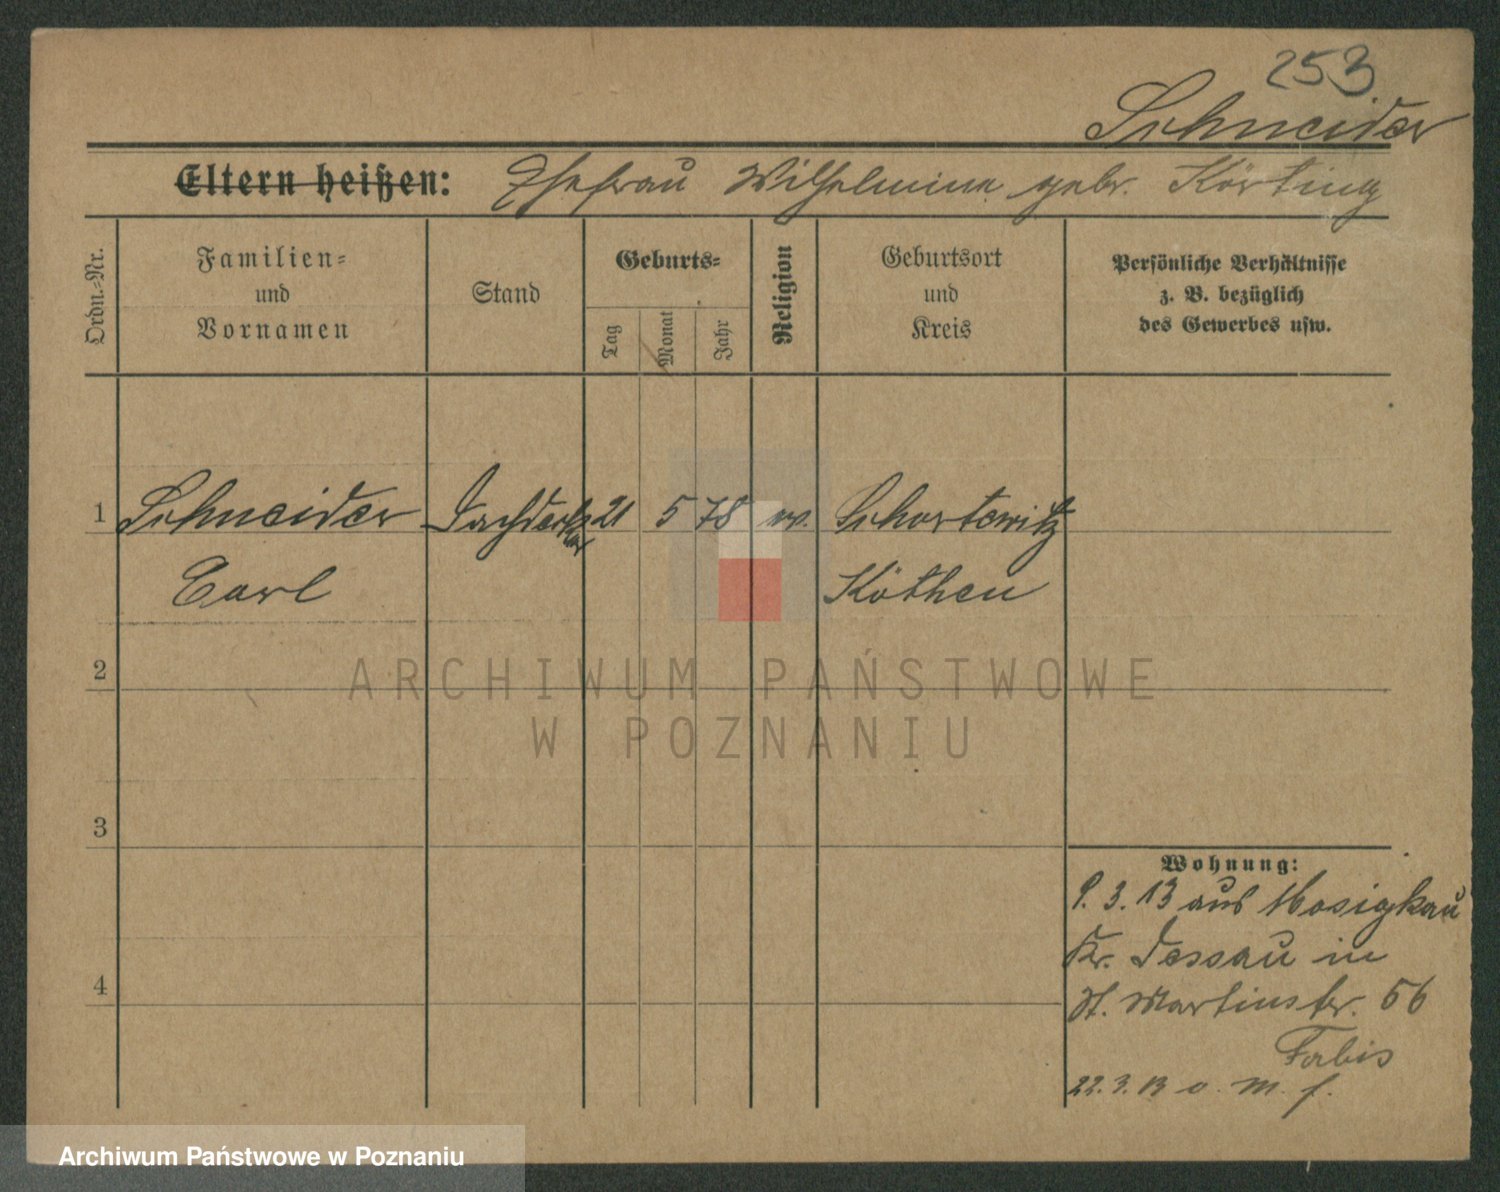 253
Schneider
Eltern heißen: Ehefrau Wilhelmine gebr. Körting
Ordn.-Nr.
Familien-
und
Vornamen
Stand
Geburts-
Tag
Monat
Jahr
Religion
Geburtsort
und
Kreis
Persönliche Verhältnisse
z. B. bezüglich
des Gewerbes usw.
1 Schneider Dachdecker 21 5 78 ev. Schortewitz
Carl Köthen
2
3
4
Wohnung:
9. 3. 13 aus Mosigkau
Kr. Dessau in
St. Martinstr. 56
Fabis
22. 3. 13 o. M. f.
ARCHIWUM PAŃSTWOWE
W POZNANIU
Archiwum Państwowe w Poznaniu